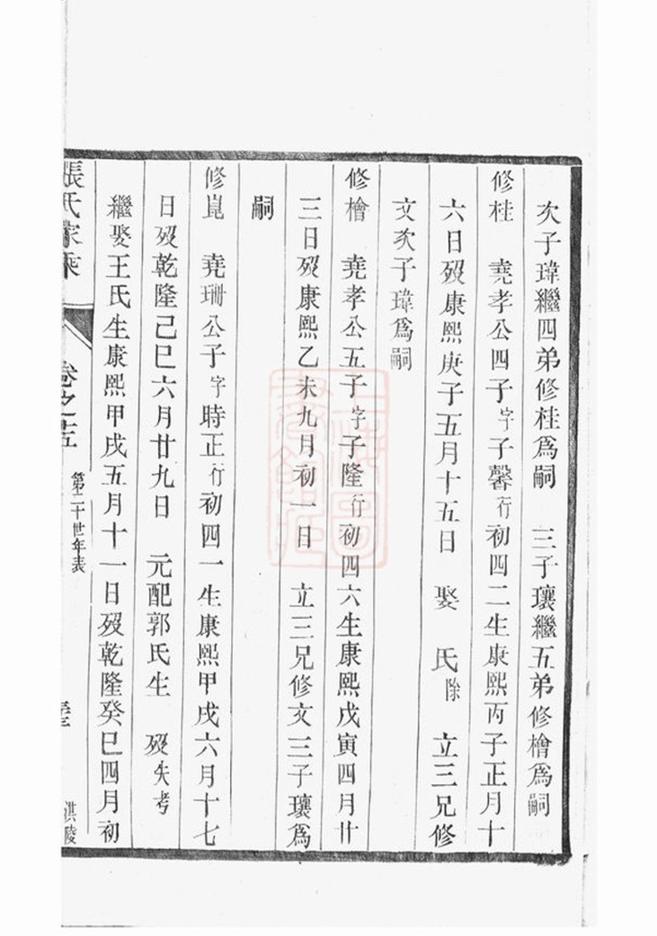 次子瑋繼四弟修桂爲嗣　三子瓖繼五弟修檜爲嗣
修桂　堯孝公四子字子馨行初四二生康熙丙子正月十
六日歿康熙庚子五月十五日　娶　氏除　立三兄修
文次子瑋爲嗣
修檜　堯孝公五子字子隆行初四六生康熙戊寅四月廿
三日歿康熙乙未九月初一日　立三兄修文三子瓖爲
嗣
修崑　堯珊公子字時正行初四一生康熙甲戌六月十七
日歿乾隆己巳六月廿九日　元配郭氏生　歿失考
繼娶王氏生康熙甲戌五月十一日歿乾隆癸巳四月初
張氏家乘
卷之
第二十世年表
淇陵